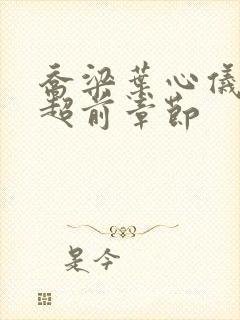 乔梁叶心仪
超前章节
是今